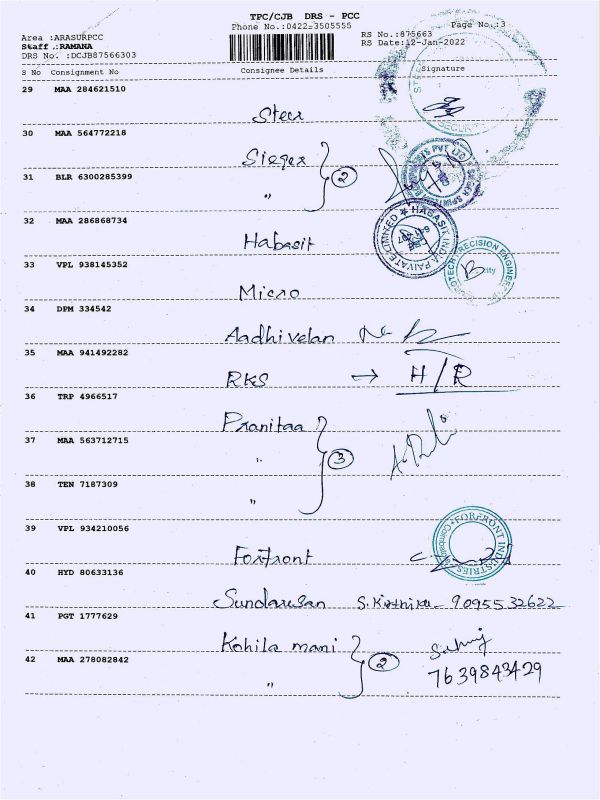 TPC/CJB DRS - PCC
Phone No.:0422-3505555
Page No.:3
Area :ARASURPCC
RS No.:875663
Staff :RAMANA
RS Date:12-Jan-2022
DRS No. :DCJB87566303
S No Consignment No Consignee Details Signature
29 MAA 284621510
Steer
30 MAA 564772218
Sieger
2
31 BLR 6300285399
"
32 MAA 286868734
Habasit
HABASIT INDIA PRIVATE LIMITED
33 VPL 938145352
PRECISION ENGINEE
Micro
34 DPM 334542
Aadhivelan
35 MAA 941492282
RKS → H/R
36 TRP 4966517
Pranitaa
3
37 MAA 563712715
"
38 TEN 7187309
"
39 VPL 934210056
FORFRONT INDUSTRIES
Forfront
40 HYD 80633136
Sundaresan 9095532622
41 PGT 1777629
Kohila mani
2
42 MAA 278082842
7639843429
"